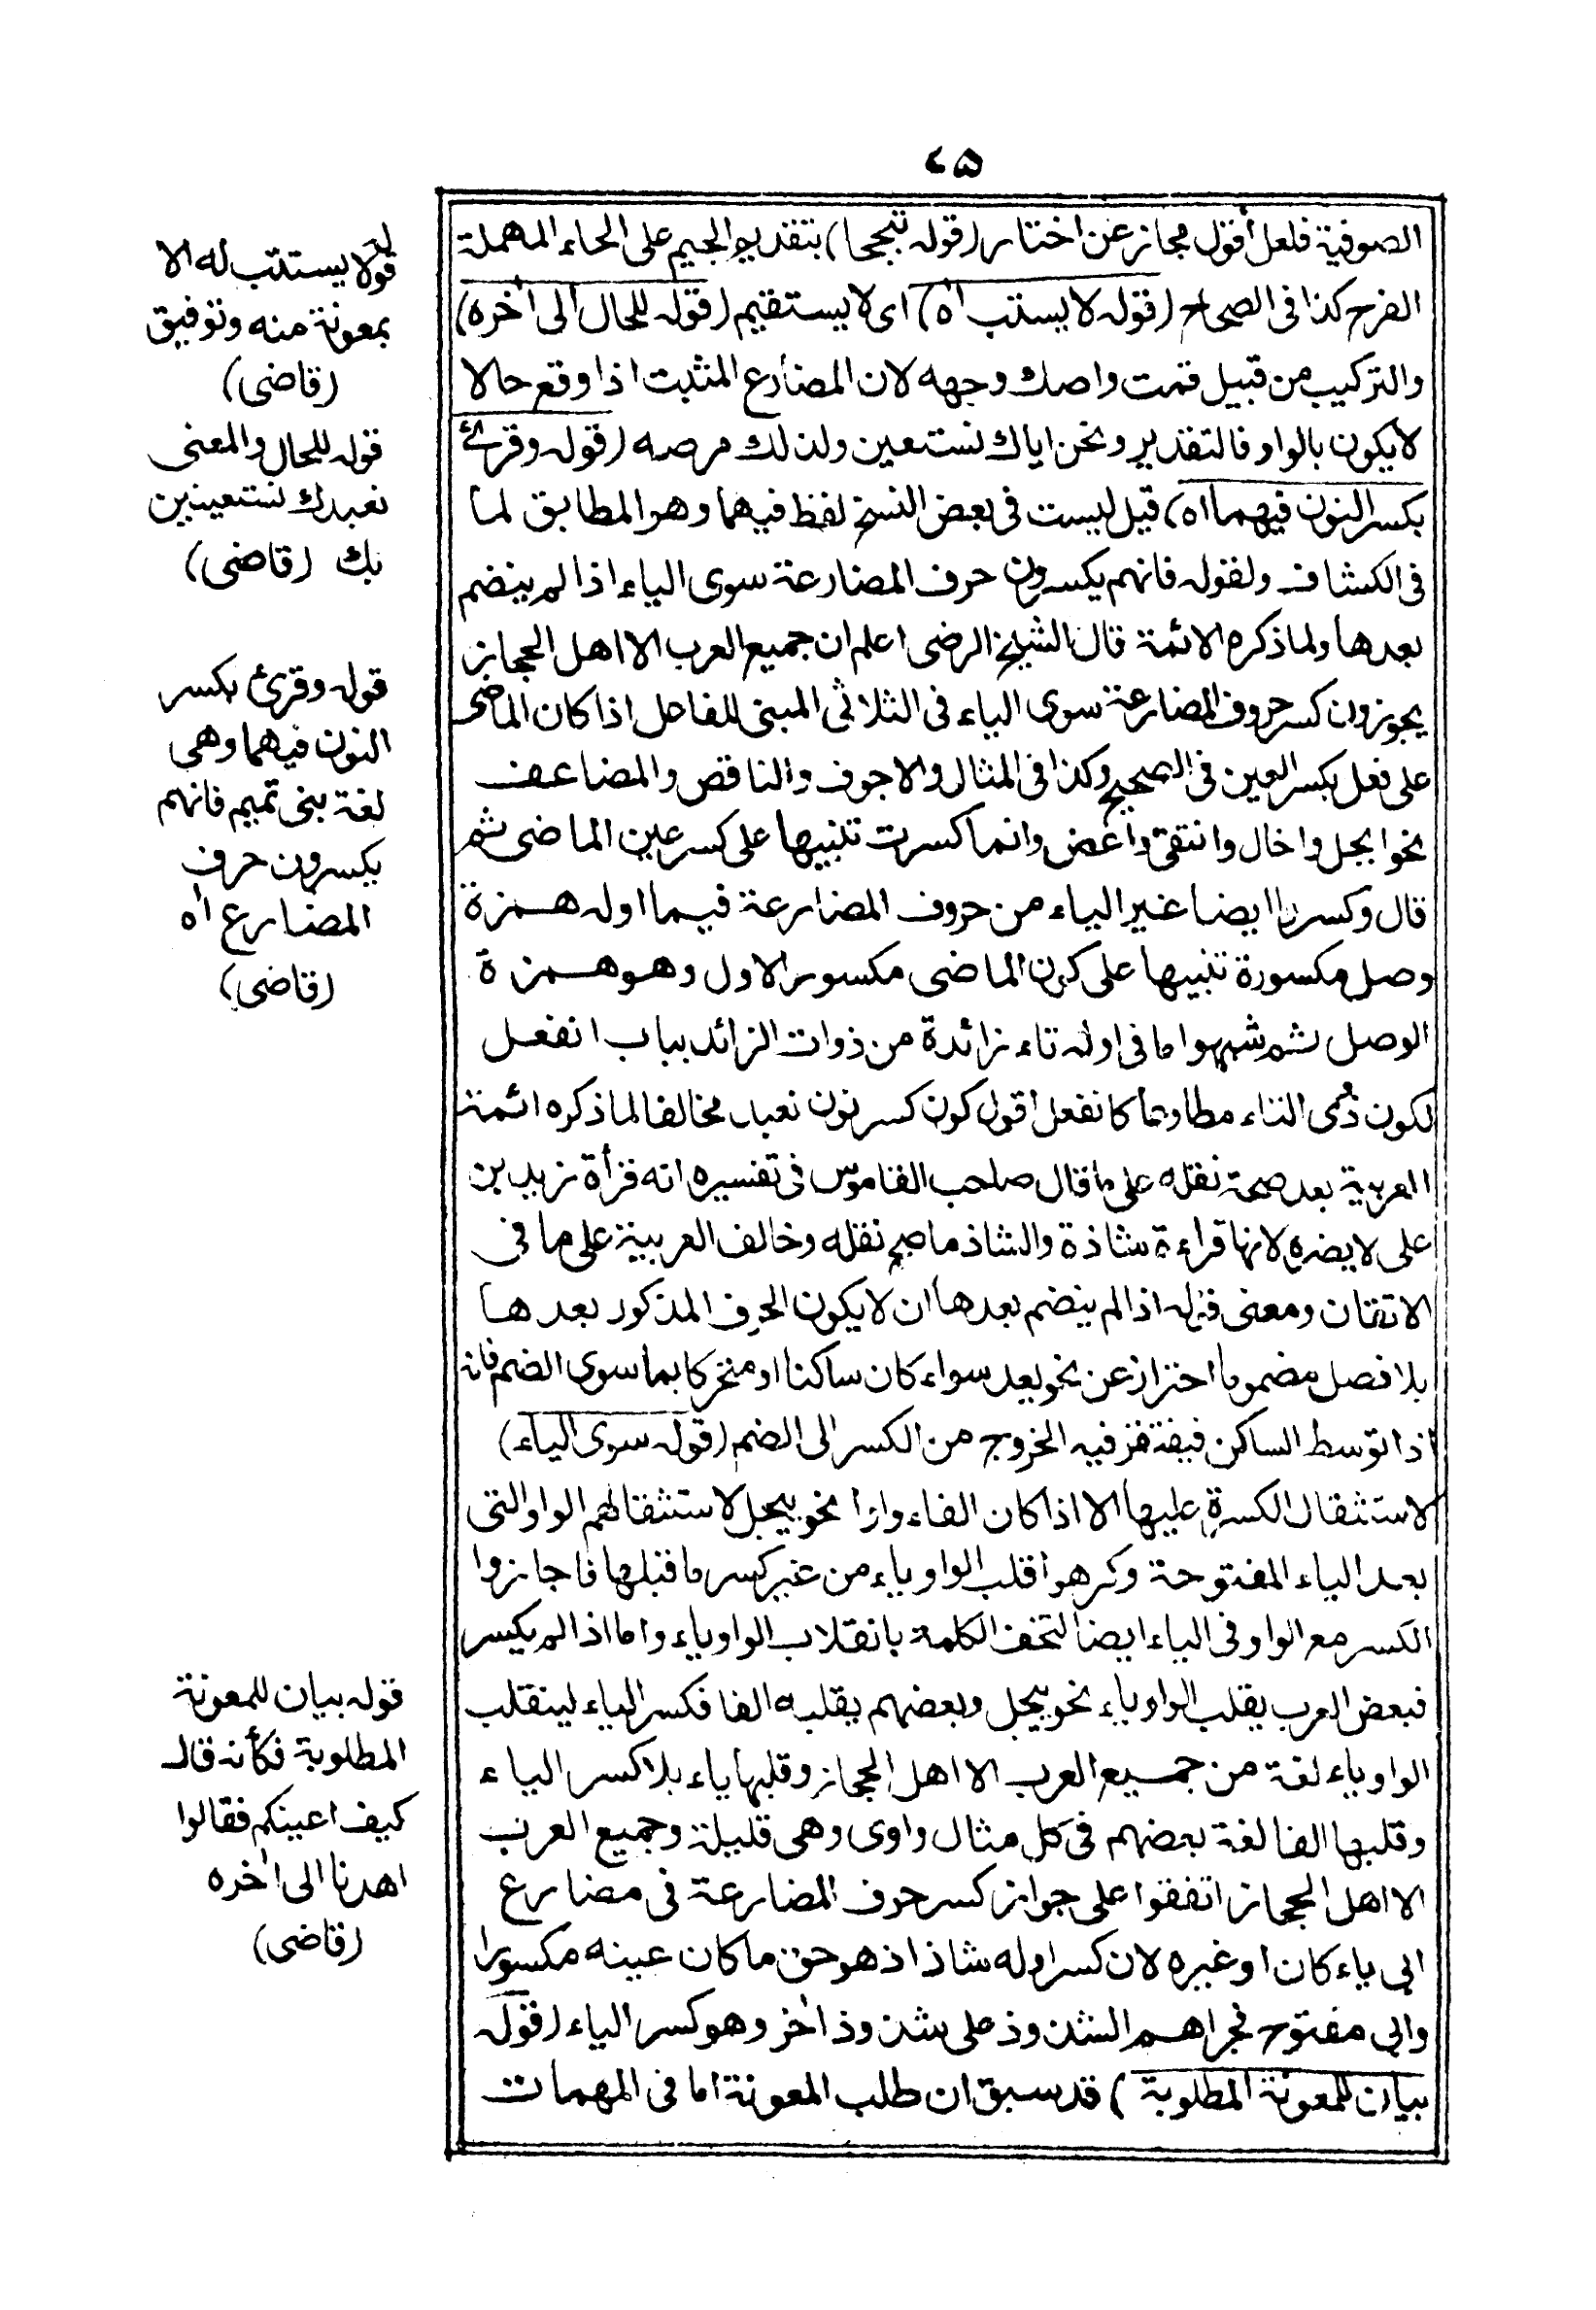 ٤٥
الصوفية فلعل أقول مجاز عن اختار (قوله تبجحا) بتقديم الجيم على الحاء المهملة
الفرح كذا في الصحاح (قوله لا يستتب اه) اى لا يستقيم (قوله للحال الى اخره)
والتركيب من قبيل قمت واصك وجهه لان المضارع المثبت اذا وقع حالا
لا يكون بالواو فالتقدير ونحن اياك نستعين ولذلك مرضه (قوله وقرئ
بكسر النون فيهما اه) قيل ليست في بعض النسخ لفظ فيهما وهو المطابق لما
في الكشاف ولقوله فانهم يكسرون حرف المضارعة سوى الياء اذا لم ينضم
بعدها ولما ذكره الائمة قال الشيخ الرضى اعلم ان جميع العرب الا اهل الحجاز
يجوزون كسر حروف المضارعة سوى الياء في الثلاثى المبنى للفاعل اذا كان الماضى
على فعل بكسر العين في الصحيح وكذا في المثال والاجوف والناقص والمضاعف
نحو ايجل واخال وانتقى واعض وانما كسرت تنبيها على كسر عين الماضى ثم
قال وكسروا ايضا غير الياء من حروف المضارعة فيما اوله همزة
وصل مكسورة تنبيها على كون الماضى مكسور الاول وهو همزة
الوصل ثم شبهوا ما في اوله تاء زائدة من ذوات الزائد بباب انفعل
لكون ذى التاء مطاوعا كانفعل اقول كون كسر نون نعبد مخالفا لما ذكره ائمة
العربية بعد صحة نقله على ما قال صاحب القاموس في تفسيره انه قرأة زيد بن
على لا يضره لانها قراءة شاذة والشاذ ما صح نقله وخالف العربية على ما في
الاتقان ومعنى قوله اذا لم ينضم بعدها ان لا يكون الحرف المذكور بعدها
بلا فصل مضموما احتراز عن نحو يعد سواء كان ساكنا او متحركا بما سوى الضم فانه
اذا توسط الساكن فيغتفر فيه الخروج من الكسر الى الضم (قوله سوى الياء)
لاستثقال الكسرة عليها الا اذا كان الفاء واوا نحو ييجل لاستثقالهم الواو التى
بعد الياء المفتوحة وكرهوا قلب الواو ياء من غير كسر ما قبلها فاجازوا
الكسر مع الواو في الياء ايضا لتخف الكلمة بانقلاب الواو ياء واما اذا لم يكسر
فبعض العرب يقلب الواو ياء نحو ييجل وبعضهم يقلبه الفا فكسر الياء لينقلب
الواو ياء لغة من جميع العرب الا اهل الحجاز وقلبها ياء بلا كسر الياء
وقلبها الفا لغة بعضهم في كل مثال واوى وهى قليلة وجميع العرب
الا اهل الحجاز اتفقوا على جواز كسر حرف المضارعة في مضارع
ابى ياء كان او غيره لان كسر اوله شاذ اذ هو حق ما كان عينه مكسورا
وابى مفتوح فجراهم الشذوذ على شذوذ اخر وهو كسر الياء (قوله
بيان للمعونة المطلوبة) قد سبق ان طلب المعونة اما في المهمات
قوله لا يستتب له الا
بمعونة منه وتوفيق
(قاضى)
قوله للحال والمعنى
نعبدك نستعينين
بك (قاضى)
قوله وقرئ بكسر
النون فيهما وهى
لغة بنى تميم فانهم
يكسرون حرف
المضارع اه
(قاضى)
قوله بيان للمعونة
المطلوبة فكأنه قال
كيف اعينكم فقالوا
اهدنا الى اخره
(قاضى)